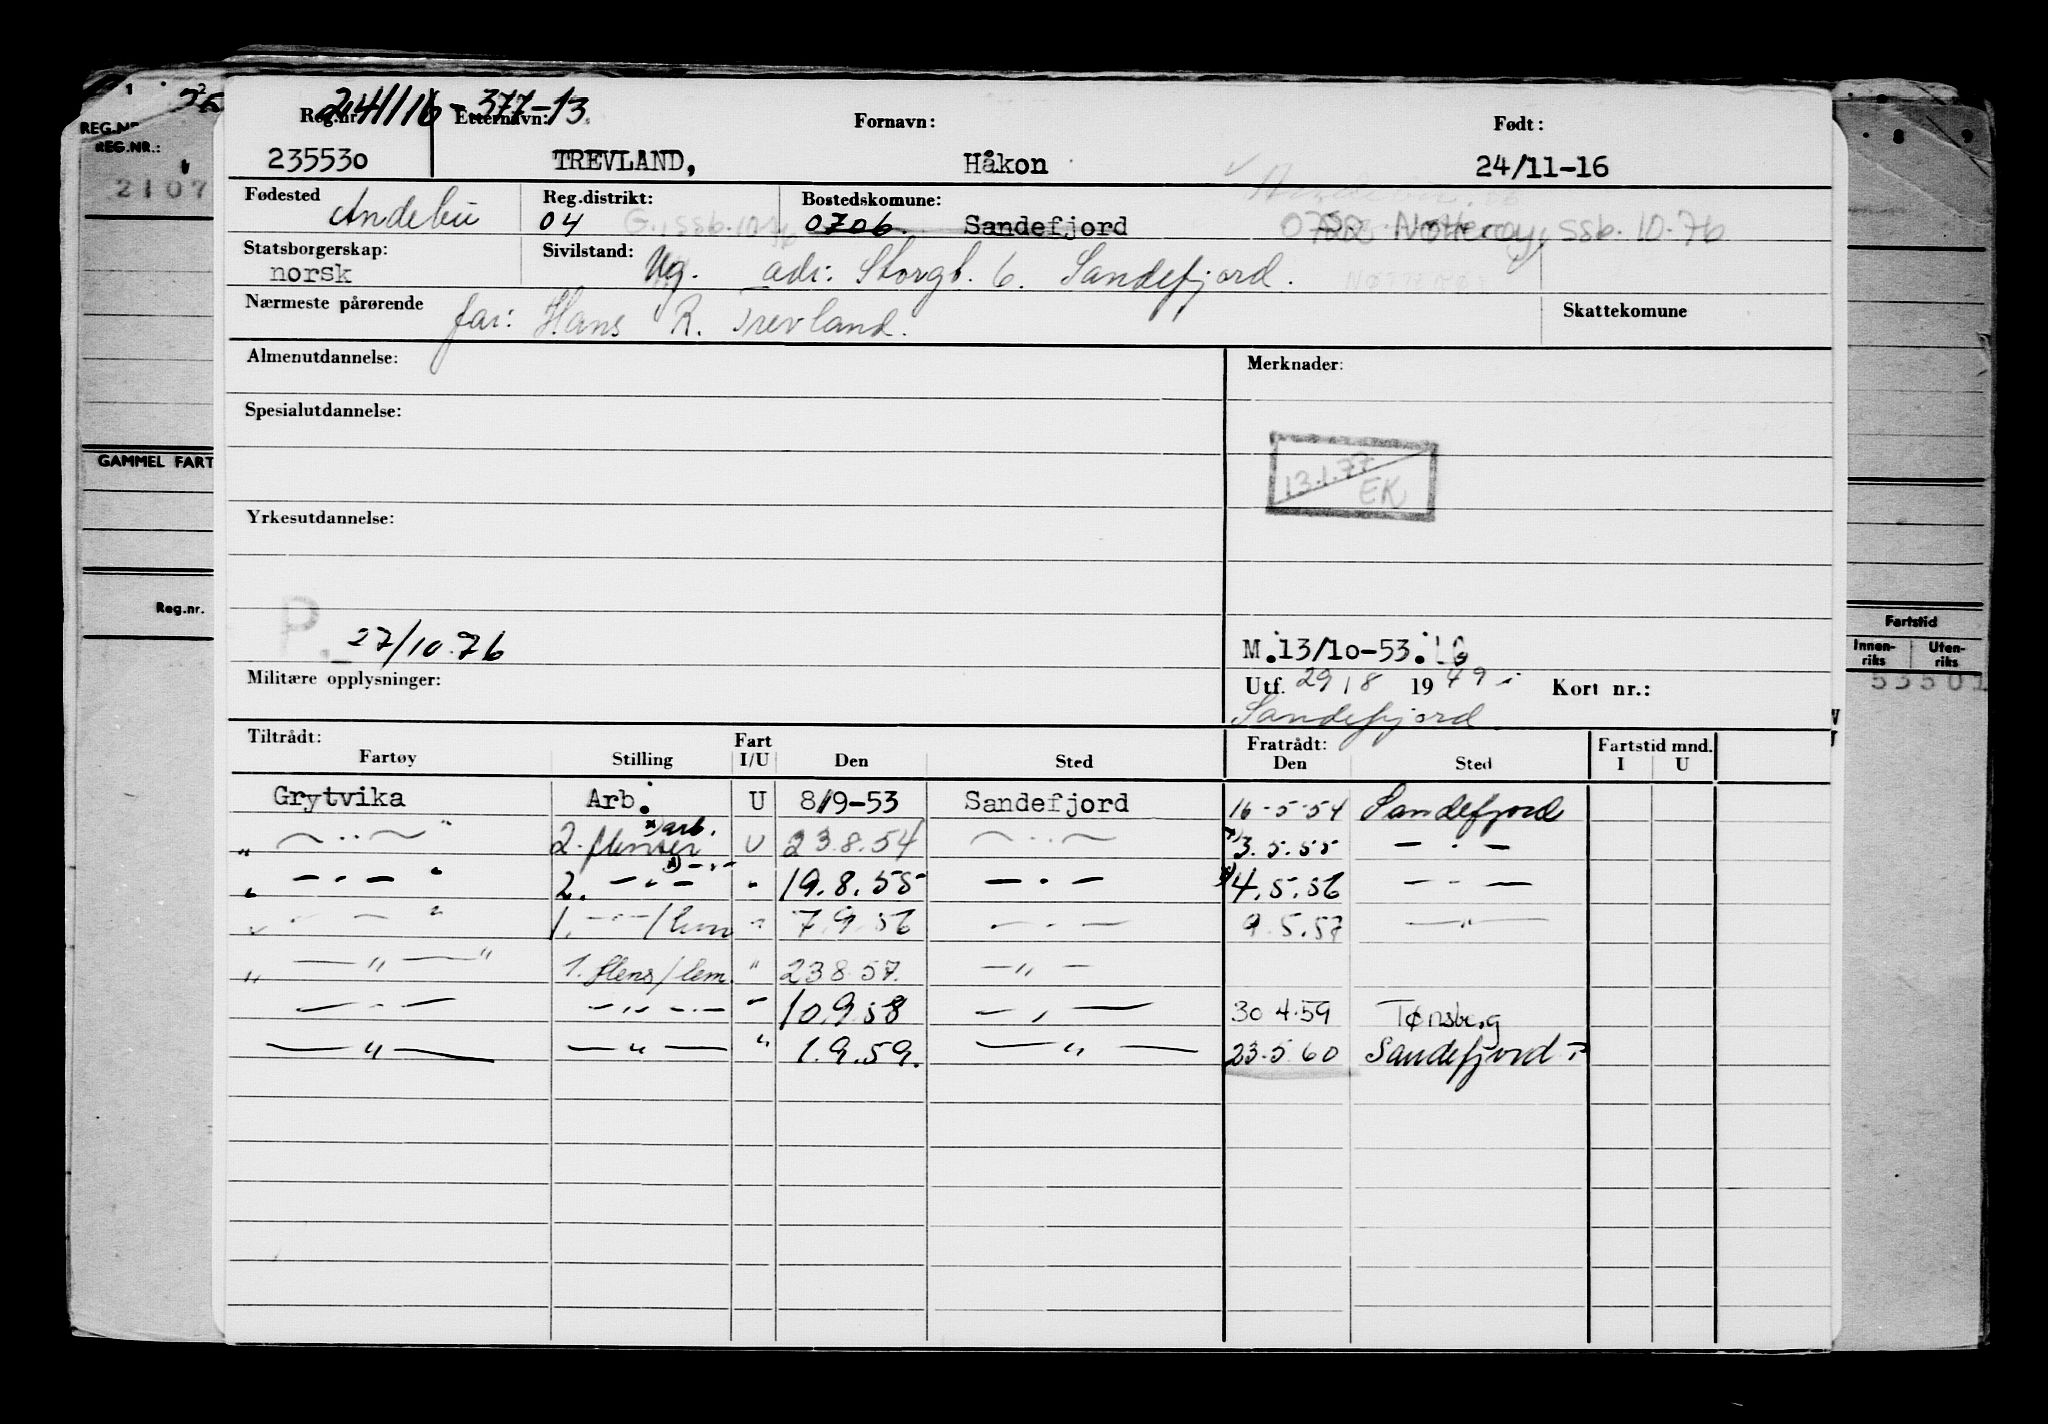 241116-377-13
Reg.nr. Etternavn: Fornavn: Født:
235530 TREVLAND, Håkon 24/11-16
Fødested Andebu Reg.distrikt: 04 G. ssb. 10-76 Bostedskommune: 0706. Sandefjord 0722 Nøtterøy, ssb. 10-76
Statsborgerskap: norsk Sivilstand: Ug. adr. Storgt. 6. Sandefjord.
Nærmeste pårørende far: Hans R. Trevland. Skattekomune
Almenutdannelse: Merknader:
Spesialutdannelse:
13.1.77 EK
Yrkesutdannelse:
P. 27/10.76 M.13/10-53.
Militære opplysninger: Utf. 29/8 1949 Kort nr.:
Sandefjord
Tiltrådt: Fratrådt: Fartstid mnd.
Fartøy Stilling Fart I/U Den Sted Den Sted I U
Grytvika Arb. U 8/9-53 Sandefjord 16-5-54 Sandefjord
" —..— " 2. flenser x) arb. U 23.8.54 — . — x) 3.5.55 — . —
" — . — " 2. — " — x) — " — " 19.8.55 — . — x) 4.5.56 — . —
" — — " 1. — " — / lem " 7.9.56 — . — 9.5.57 — " —
" — " — " 1. flens/lem. " 23.8.57. — " —
— . — — " — . — " 10.9.58 — , — 30.4.59 Tønsberg
— " — — " — " 1.9.59. — " — 23.5.60 Sandefjord
REG.NR.:
2107
GAMMEL FART
Reg.nr.
8 9
Fartstid
Innen-riks Uten-riks
53501